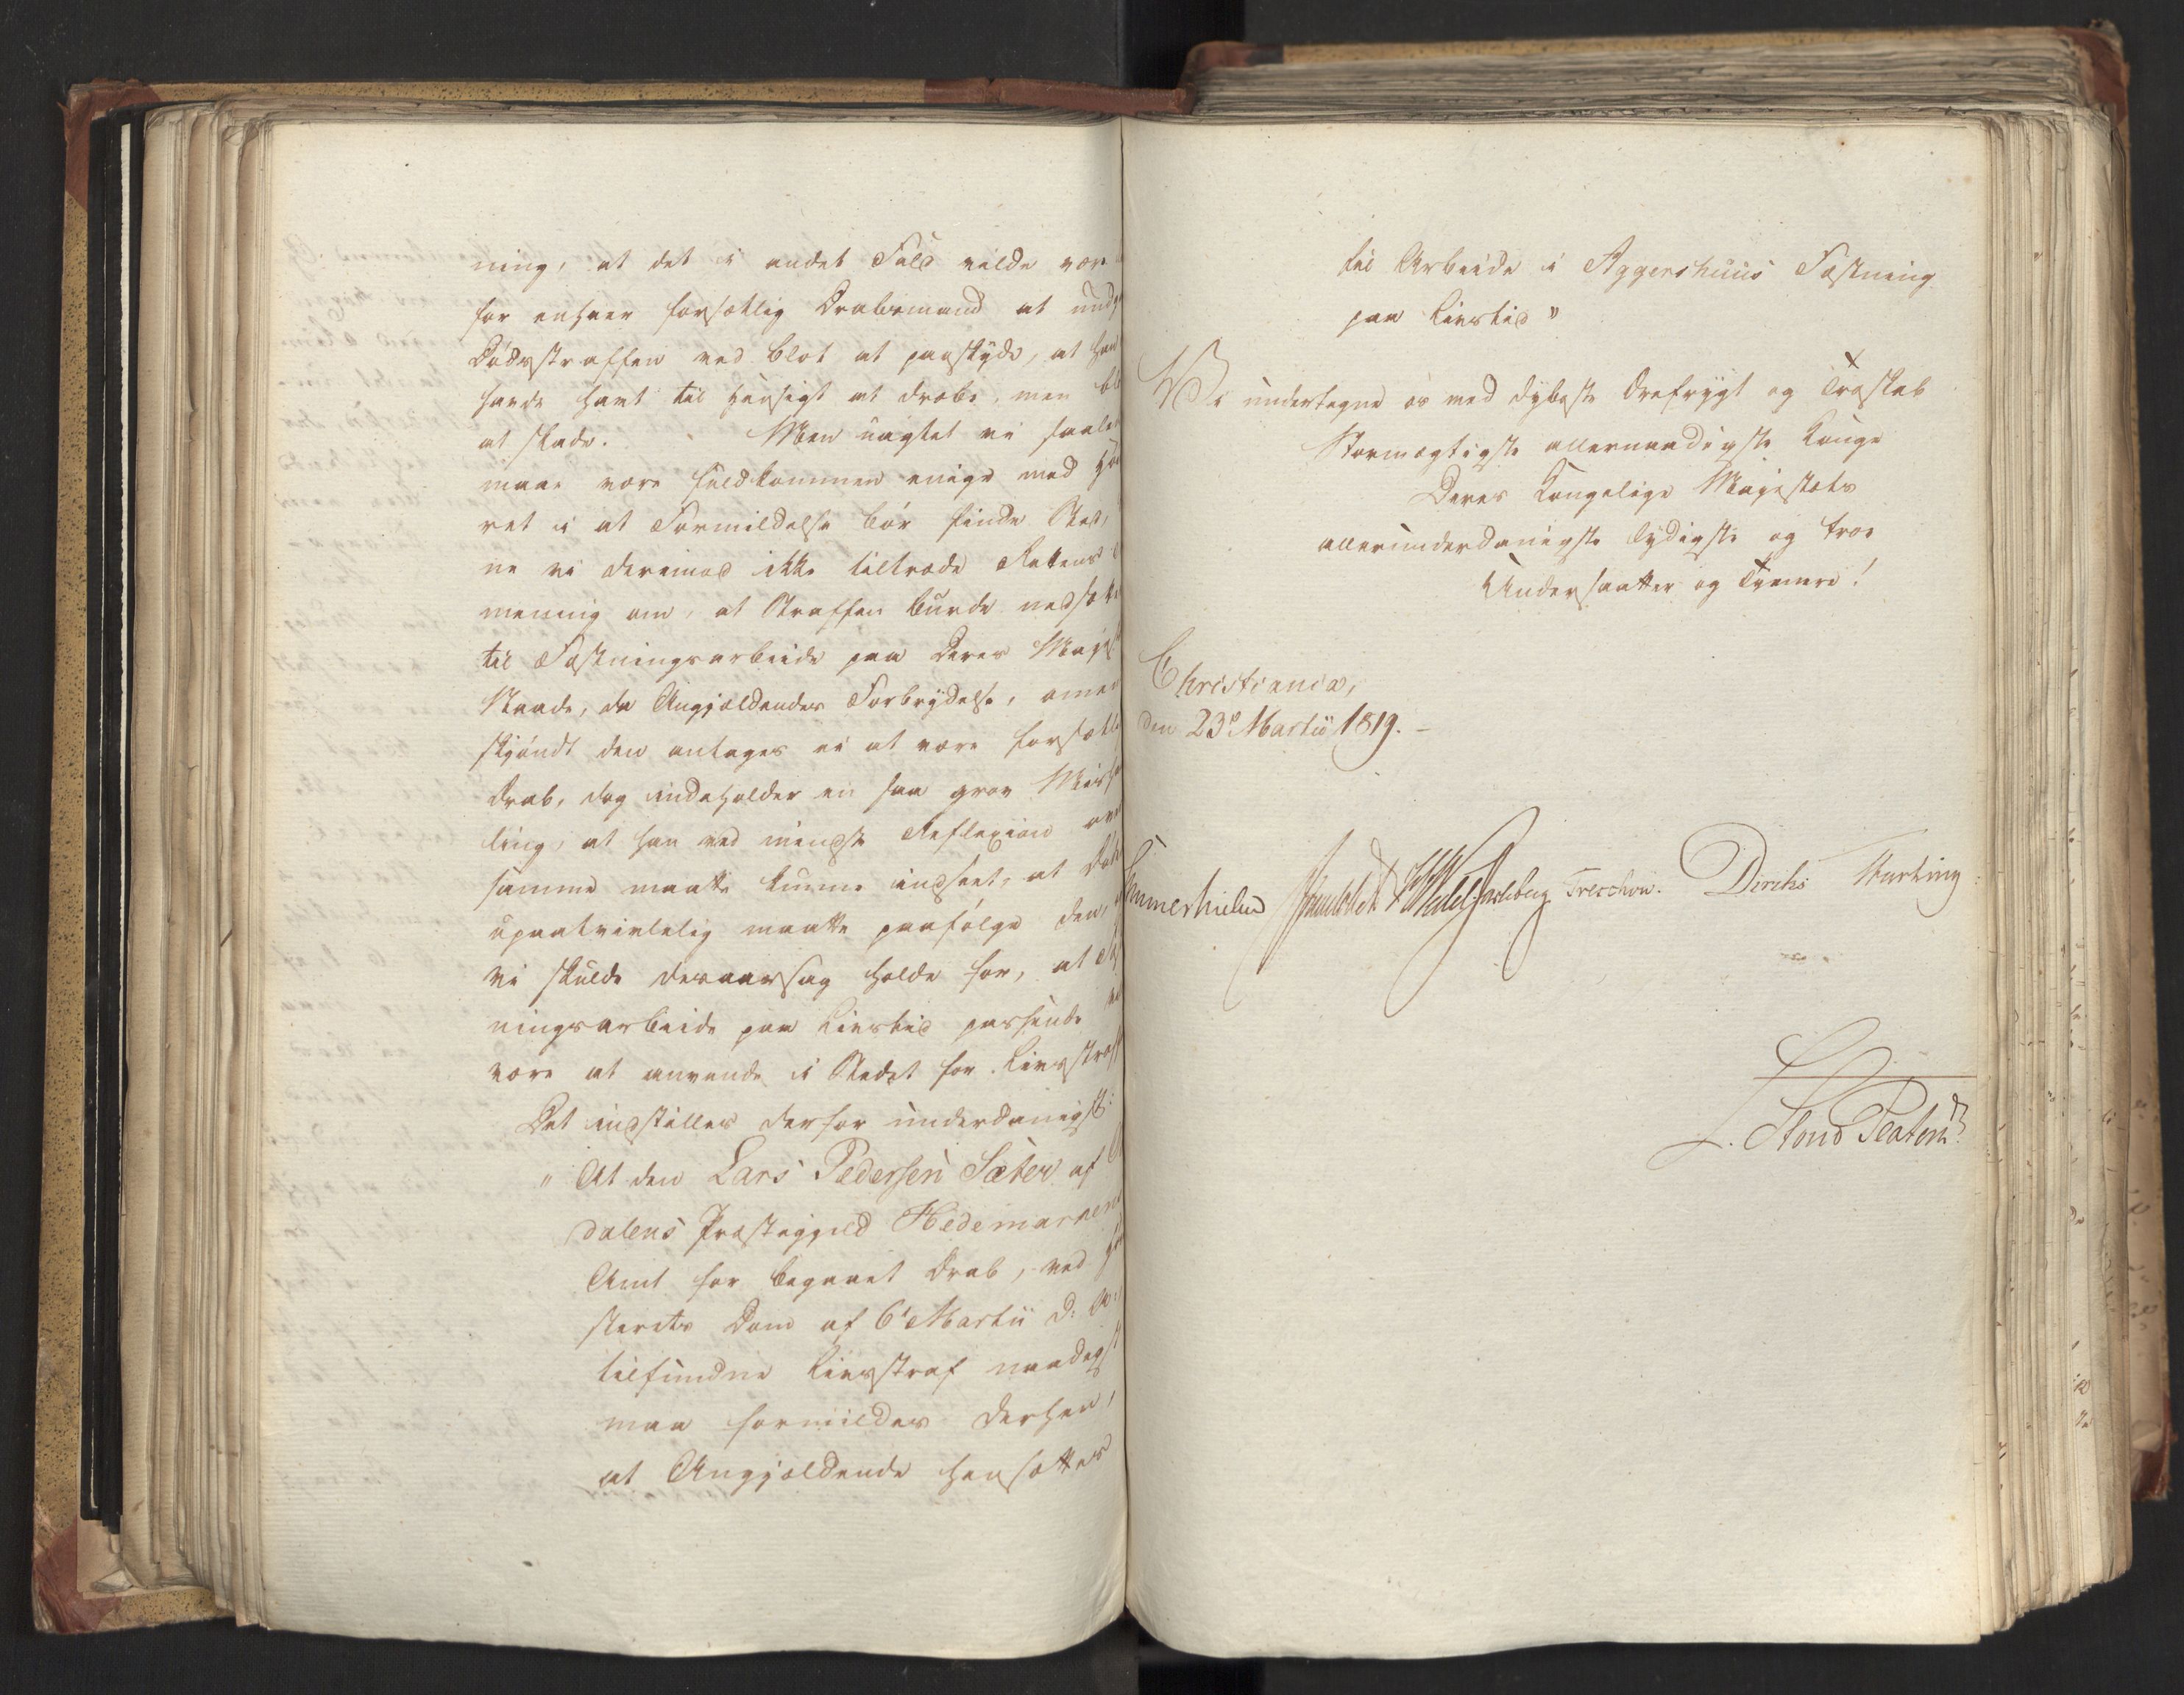 ning, at det i andet Fald vilde være
for enhver forsætlig Drabsmand at undg
Dødsstraffen ved blot at paaskyde, at han
havde havt til Hensigt at dræbe, men bl
at skade. Men uagtet vi saale
maae være fuldkommen enige med Høi
ret i at Formildelse bør finde Sted,
ne vi derimod ikke tiltræde Rettens
mening om, at Straffen burde nedsætte
til Fæstningsarbeide paa Deres Maj
Naade, da Angjældendes Forbrydelse, omen
skjøndt den antages ei at være forsætli
Drab, dog indeholder en saa grov Misha
ling, at han ved mindste Reflexion over
samme maatte kunne indseet, at Død
upaatvivlelig maatte paafølge den,
vi skulde desaarsag holde for, at Fæst
ningsarbeide paa Livstid passende
være at anvende i Stedet for Livsstraff
Det indstilles derfor underdanigst:
" At den Lars Pedersen Sæter af
dalens Præstegjeld Hedemarkens
Amt for begaaet Drab, ved Høi
sterets Dom af 6te Martii d: A:
tilfundne Livsstraf naadigst
maa formildes derhen,
at Angjældende hensættes
til Arbeide i Aggershuus Fæstning
paa Livstid "
Vi undertegne os med dybeste Ærefrygt og Troskab
Stormægtigste allernaadigste Konge
Deres Kongelige Majestæts
allerunderdanigste lydigste og troe
Undersaatter og Tjenere!
Christiania,
den 23de Martii 1819. -
Sommerhielm Wedel Jarlsberg Treschow. Diriks